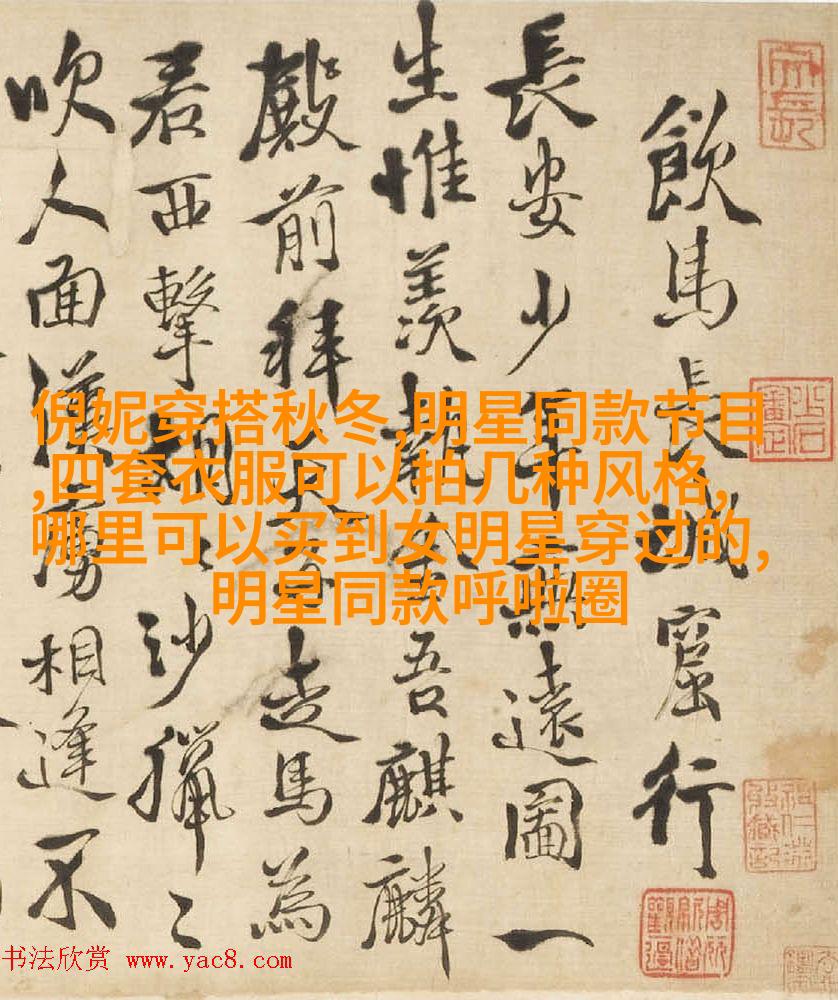 飲馬長城窟行
長安少年無遠圖一
生惟羨執金吾麒麟
殿前拜天子走馬為
君西擊胡〻沙獵〻
吹人面漢虜相逢不
倪妮穿搭秋冬,明星同款节目
,四套衣服可以拍几种风格,
哪里可以买到女明星穿过的,
明星同款呼啦圈
书法欣赏 www.yac8.com